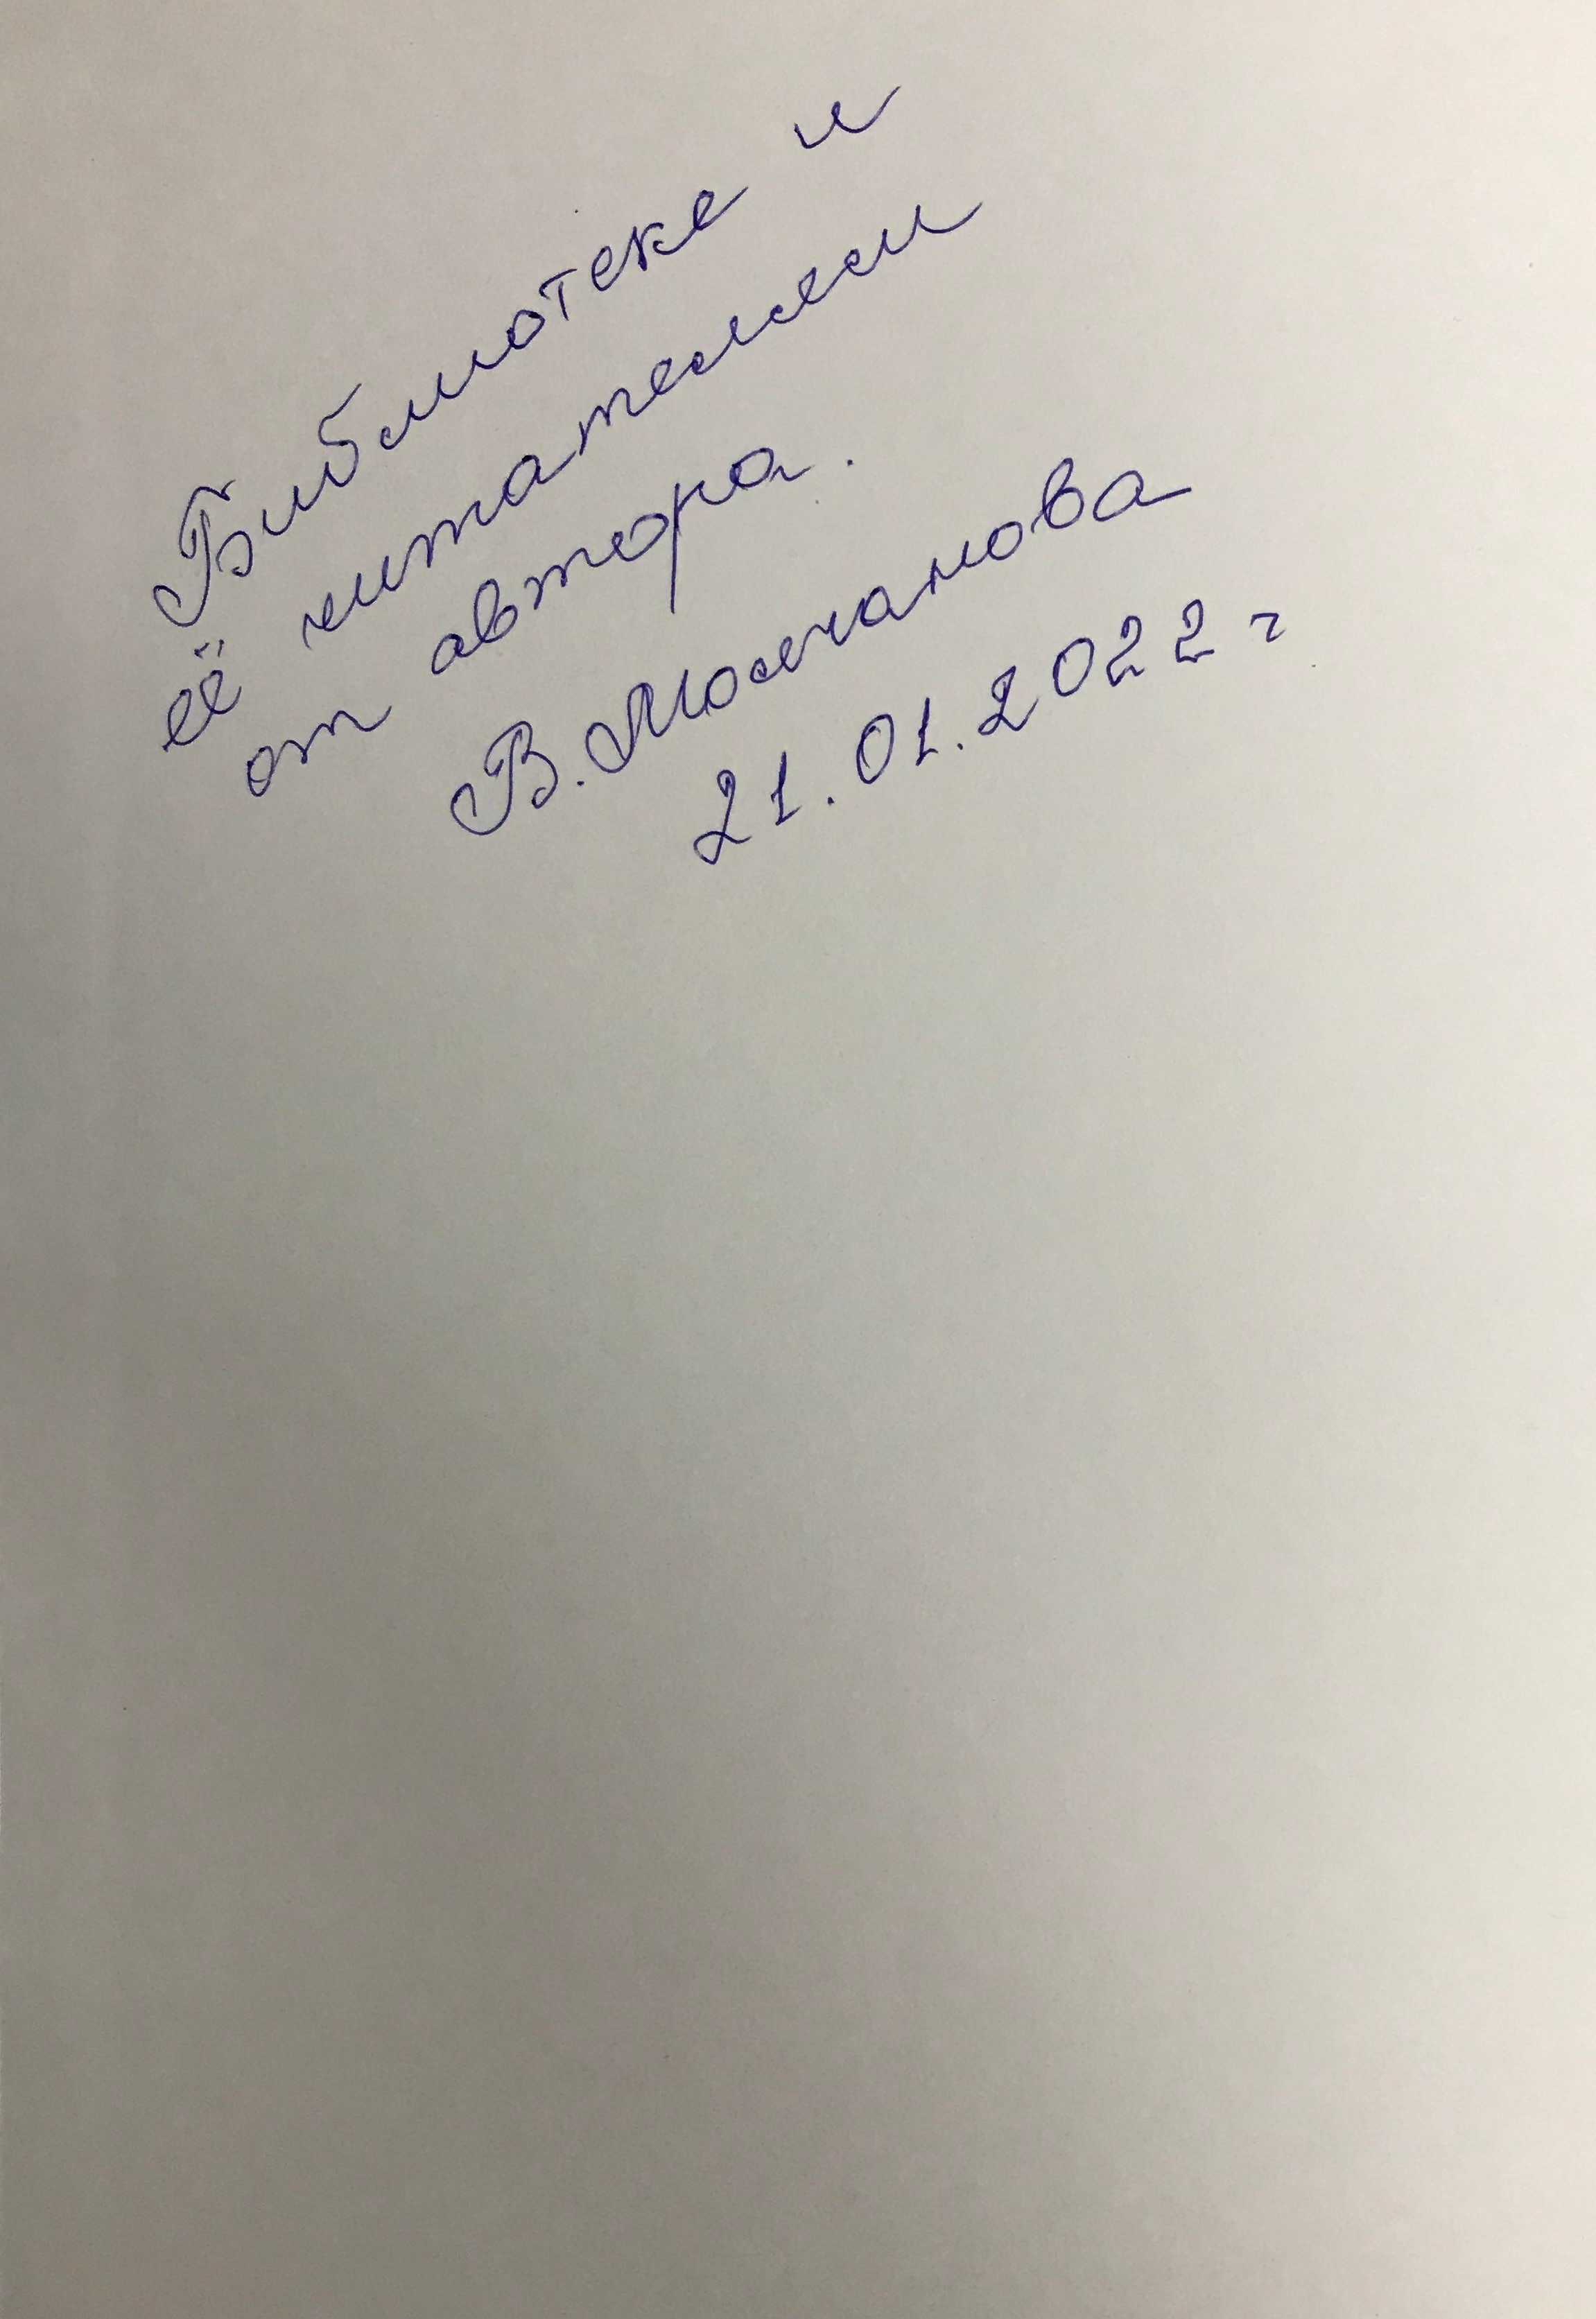 Библиотеке и
её читателям
от автора.
В. Молчанова
21.01.2022 г